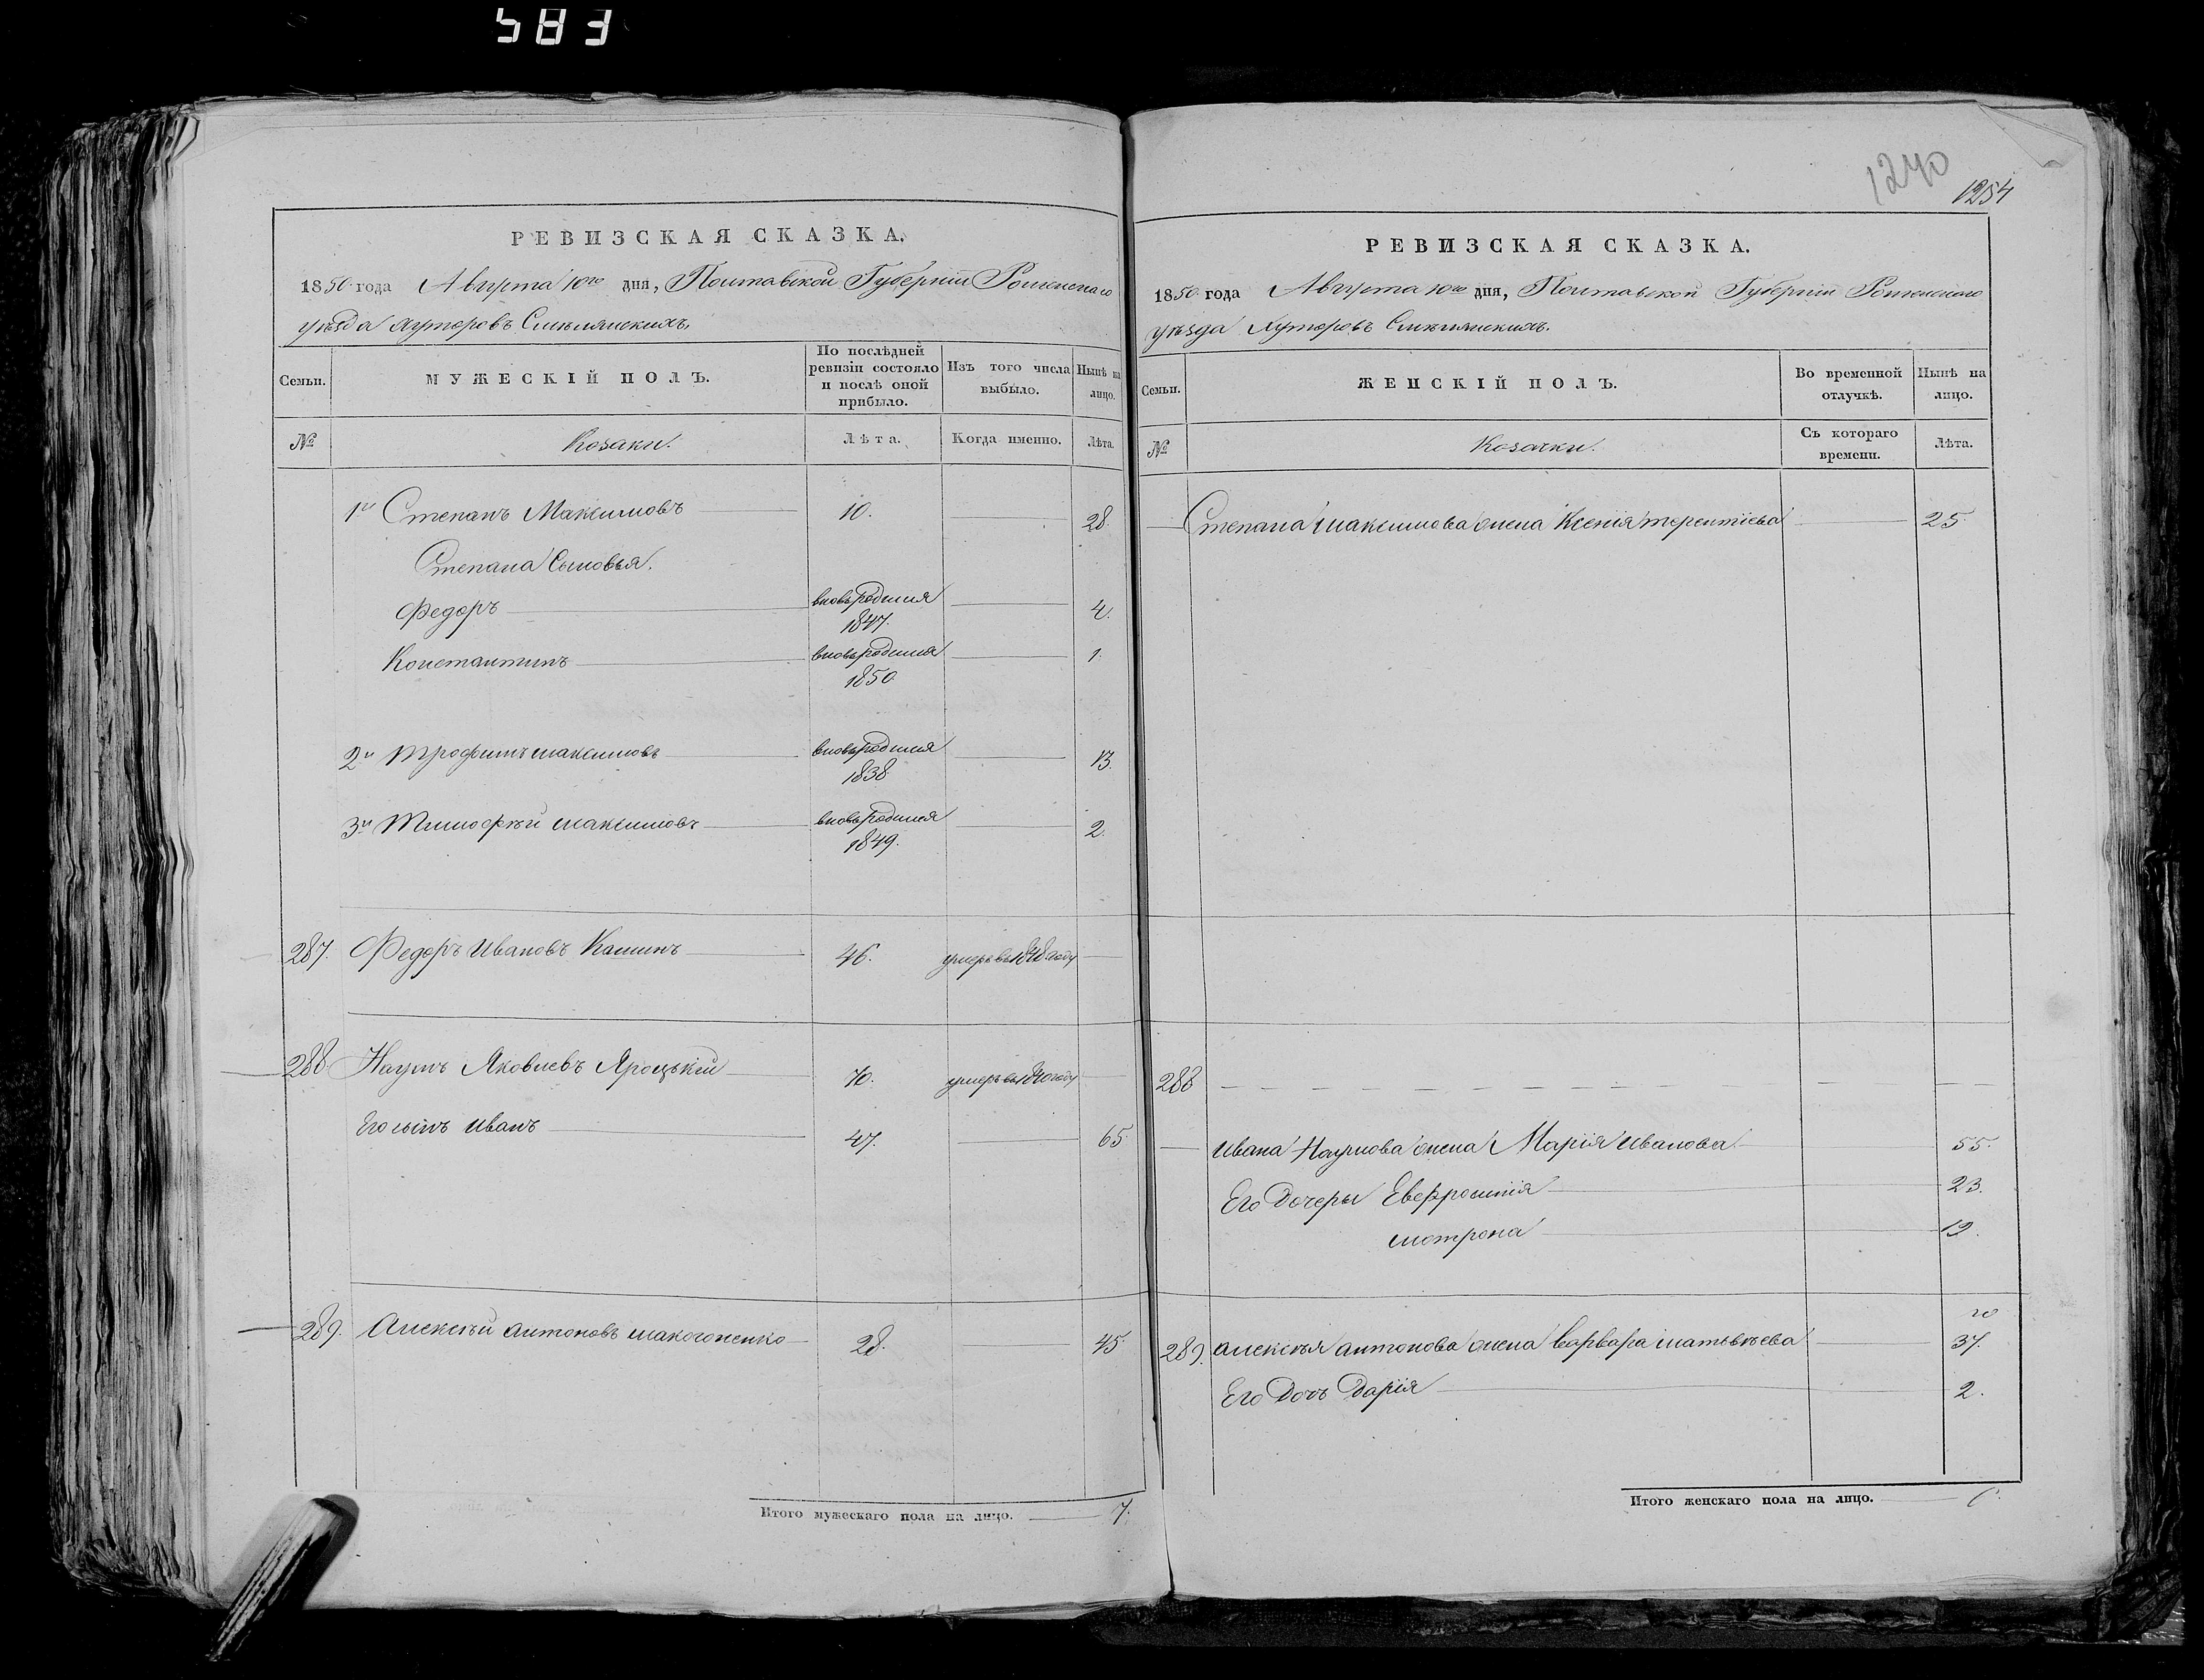 583
1240
1254
РЕВИЗСКАЯ СКАЗКА.
1850 года Августа 10го дня, Полтавской Губерніи Роменскаго
уѣзда хуторовъ Смѣлянскихъ.
Семьи.
МУЖЕСКІЙ ПОЛЪ.
По послѣдней ревизіи состояло и послѣ оной прибыло.
Изъ того числа выбыло.
Нынѣ на лицо.
№
Козаки.
Лѣта.
Когда именно.
Лѣта.
1й Степанъ Максимовъ 10. 28.
Степана Сыновья.
Федоръ вновьродился 1847. 4.
Константинъ вновьродился 1850 1.
2й Трофимъ максимовъ вновьродился 1838 13.
3й Тимофѣй максимовъ вновьродился 1849. 2.
287. Федоръ Ивановъ 46. умеръ въ 1848 году
288 Наумъ Яковлевъ Яроцькій 70. умеръ въ 1840 году
Его сынъ иванъ 47. 65.
289. Алексѣй антоновъ макогоненко 28. 45.
Итого мужескаго пола на лицо. 7.
РЕВИЗСКАЯ СКАЗКА.
1850 года Августа 10го дня, Полтавской Губерніи Роменскаго
уѣзда Хуторовъ Смѣлянскихъ.
Семьи.
ЖЕНСКІЙ ПОЛЪ.
Во временной отлучкѣ.
Нынѣ на лицо.
№
Козачки.
Съ котораго времени.
Лѣта.
Степана максимова жена Ксенія терентіева 25.
288
Ивана Наумова жена Марія Иванова 55.
Его Дочеры Евфросинія 23.
мотрона 19.
289. алексѣя антонова жена варвара матвѣева 37.
Его Дочь Дарія 2.
Итого женскаго пола на лицо. 6.